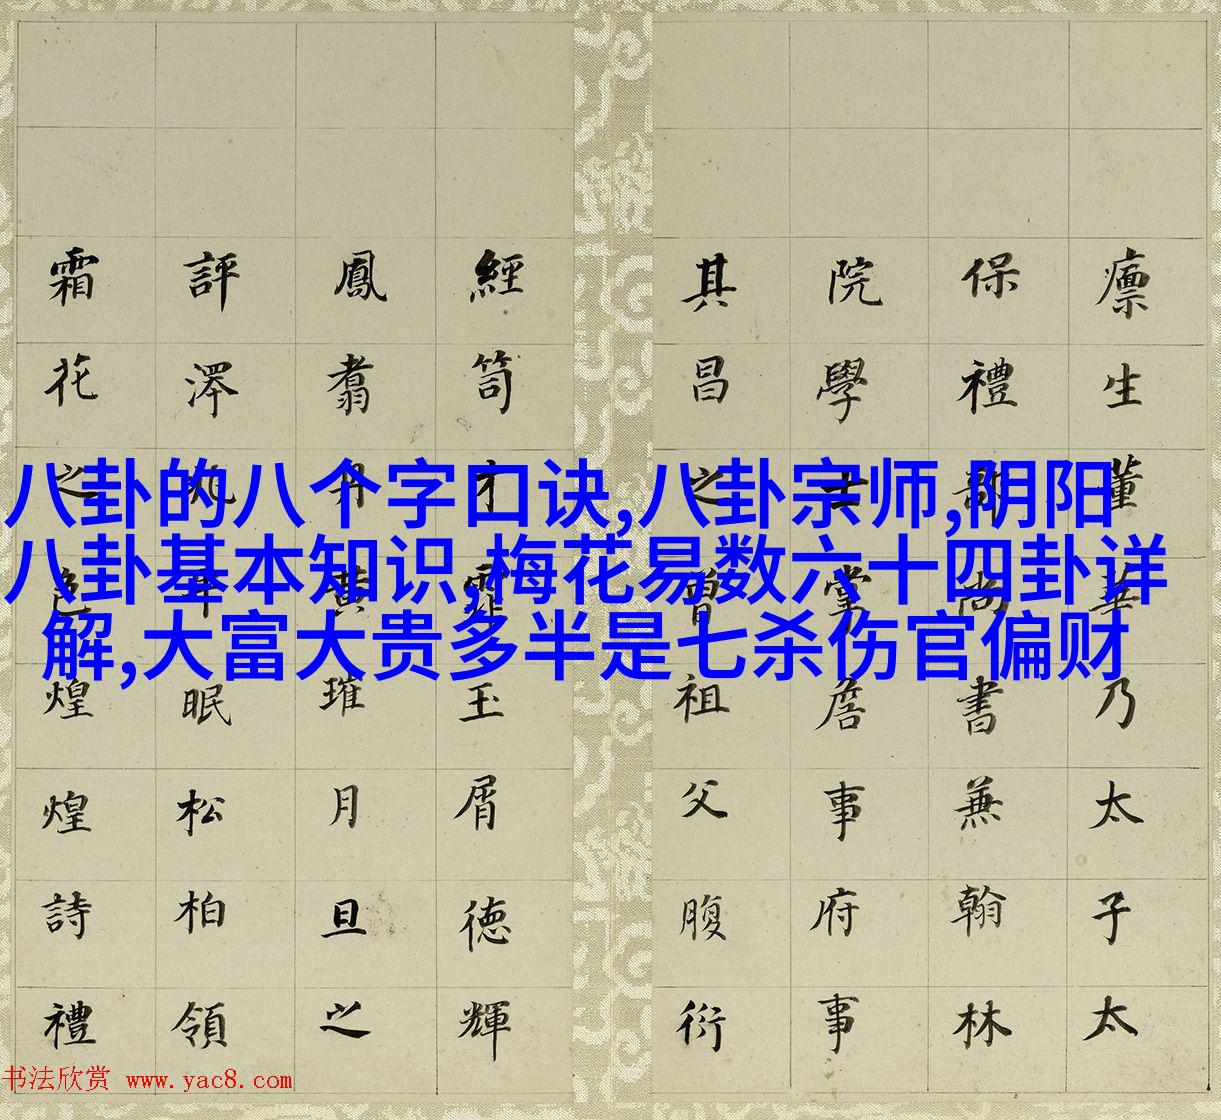 癛生董華乃太子太
保禮部尚書兼翰林
院學士掌詹事府事
其昌之曾祖父腹衍
經笥才霏玉屑德輝
鳳翥丹黃璀月旦之
評澤牛眠松柏領
霜花之色煌煌詩禮
八卦的八个字口诀,八卦宗师,阴阳
八卦基本知识,梅花易数六十四卦详
解,大富大贵多半是七杀伤官偏财
书法欣赏 www.yac8.com